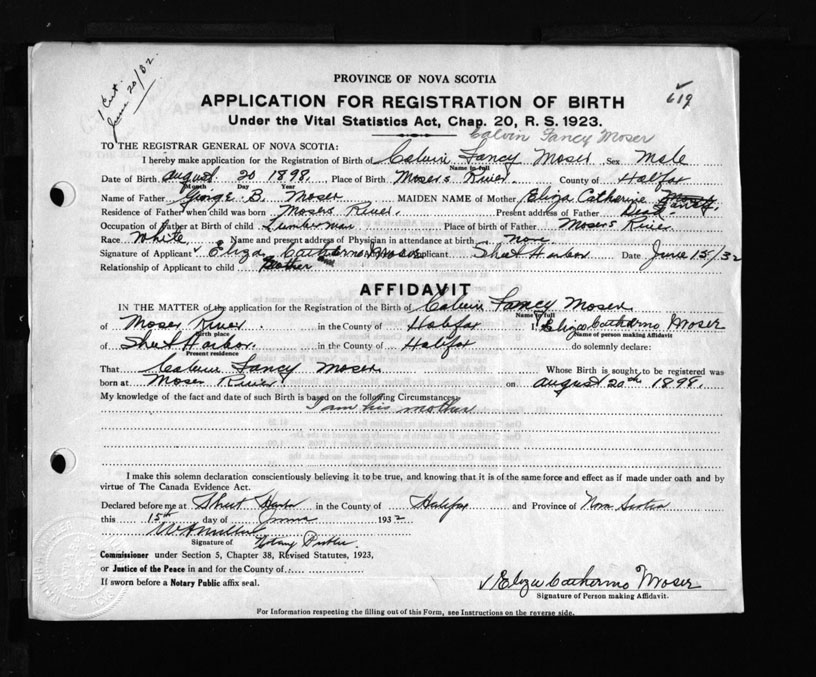 1 Cert.
June 20/32
619
PROVINCE OF NOVA SCOTIA
APPLICATION FOR REGISTRATION OF BIRTH
Under the Vital Statistics Act, Chap. 20, R. S. 1923.
Calvin Fancy Moser
TO THE REGISTRAR GENERAL OF NOVA SCOTIA:
I hereby make application for the Registration of Birth of Calvin Fancy Moser Sex Male
Name in full
Date of Birth August 20 1898. Place of Birth Mosers River. County of Halifax
Month Day Year
Name of Father George B. Moser MAIDEN NAME of Mother Eliza Catherine Fancy.
Residence of Father when child was born Mosers River. Present address of Father Dead.
Occupation of Father at Birth of child Lumberman Place of birth of Father Mosers River.
Race White Name and present address of Physician in attendance at birth none
Signature of Applicant Eliza Catherno Moser Applicant Sheet Harbor Date June 15/32
Relationship of Applicant to child Mother
AFFIDAVIT
IN THE MATTER of the application for the Registration of the Birth of Calvin Fancy Moser
Name in full
of Moser River in the County of Halifax I, Eliza Catherno Moser
Birth place Name of person making Affidavit
of Sheet Harbor. in the County of Halifax do solemnly declare:
Present residence
That Calvin Fancy Moser Whose Birth is sought to be registered was
born at Moser River on August 20th 1898.
My knowledge of the fact and date of such Birth is based on the following Circumstances
I am his mother
I make this solemn declaration conscientiously believing it to be true, and knowing that it is of the same force and effect as if made under oath and by
virtue of The Canada Evidence Act.
Declared before me at Sheet Harbor in the County of Halifax and Province of Nova Scotia
this 15th day of June 1932
Signature of Notary Public
Commissioner under Section 5, Chapter 38, Revised Statutes, 1923,
or Justice of the Peace in and for the County of
If sworn before a Notary Public affix seal.
Eliza Catherno Moser
Signature of Person making Affidavit.
For Information respecting the filling out of this Form, see Instructions on the reverse side.